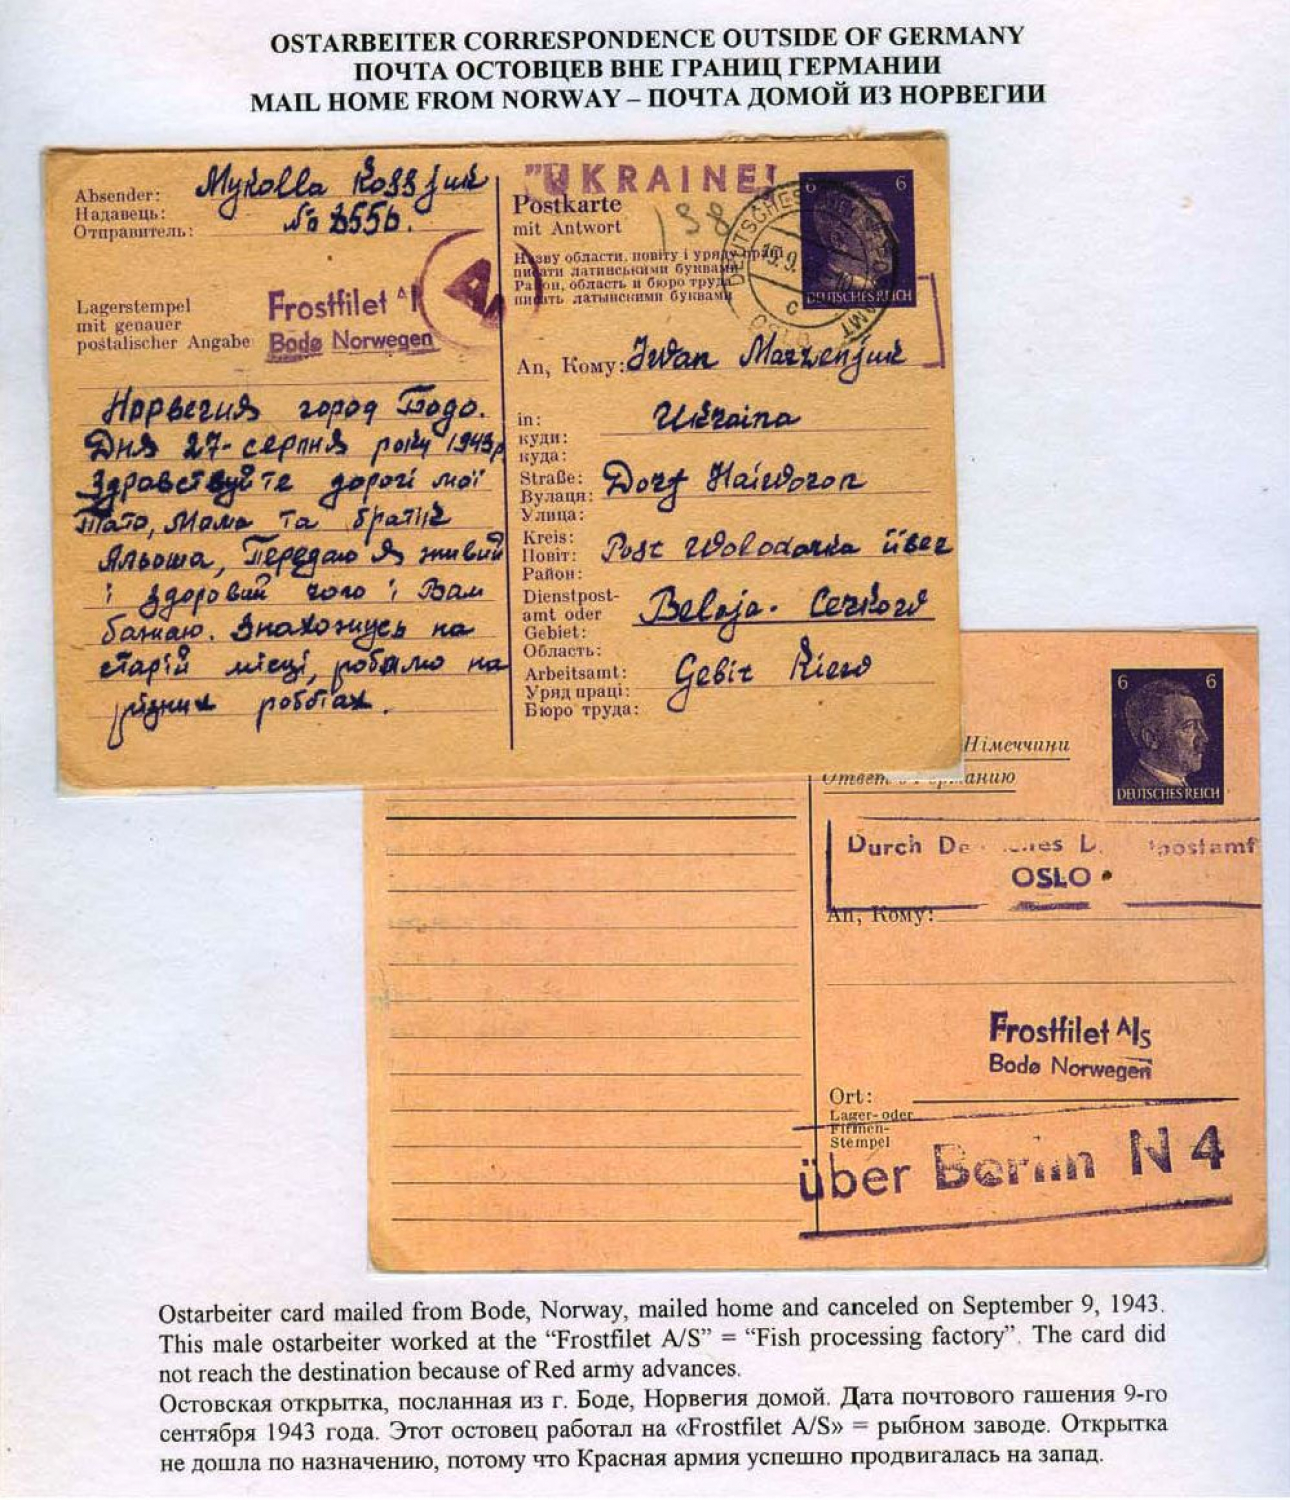 OSTARBEITER CORRESPONDENCE OUTSIDE OF GERMANY
ПОЧТА ОСТОВЦЕВ ВНЕ ГРАНИЦ ГЕРМАНИИ
MAIL HOME FROM NORWAY – ПОЧТА ДОМОЙ ИЗ НОРВЕГИИ
Absender:
Надавець:
Отправитель:
Mykolla
No
Lagerstempel
mit genauer
postalischer Angabe
Frostfilet A
Bodø Norwegen
Норвегия город Бодо.
Дня 27- серпня року 1943р
Здравствуйте дорогі мої
тато, мама та братік
Альоша, Передаю я живий
і здоровий чого і Вам
бажаю. Знахожусь на
старій місці, робимо на
різних роботах.
"UKRAINE!
Postkarte
mit Antwort
138
Назву области, повіту і уряду праці
писати латинськими буквами
Район, область и бюро труда
писать латынскими буквами
6 6
DEUTSCHES REICH
An, Кому: Iwan Marzenjuk
in:
куди:
куда:
Ukraina
Straße:
Вулиця:
Улица:
Dorf Haiworon
Kreis:
Повіт:
Район:
Post Wolodarka über
Dienstpost-
amt oder
Gebiet:
Область:
Belaja- Cerkow
Arbeitsamt:
Уряд праці:
Бюро труда:
Gebit Kiew
Німеччини
Ответ в Германию
6 6
DEUTSCHES REICH
Durch
OSLO
An, Кому:
Frostfilet A/s
Bodø Norwegen
Ort:
Lager- oder
Firmen-
Stempel
über Berlin N 4
Ostarbeiter card mailed from Bode, Norway, mailed home and canceled on September 9, 1943.
This male ostarbeiter worked at the “Frostfilet A/S” = “Fish processing factory”. The card did
not reach the destination because of Red army advances.
Остовская открытка, посланная из г. Боде, Норвегия домой. Дата почтового гашения 9-го
сентября 1943 года. Этот остовец работал на «Frostfilet A/S» = рыбном заводе. Открытка
не дошла по назначению, потому что Красная армия успешно продвигалась на запад.